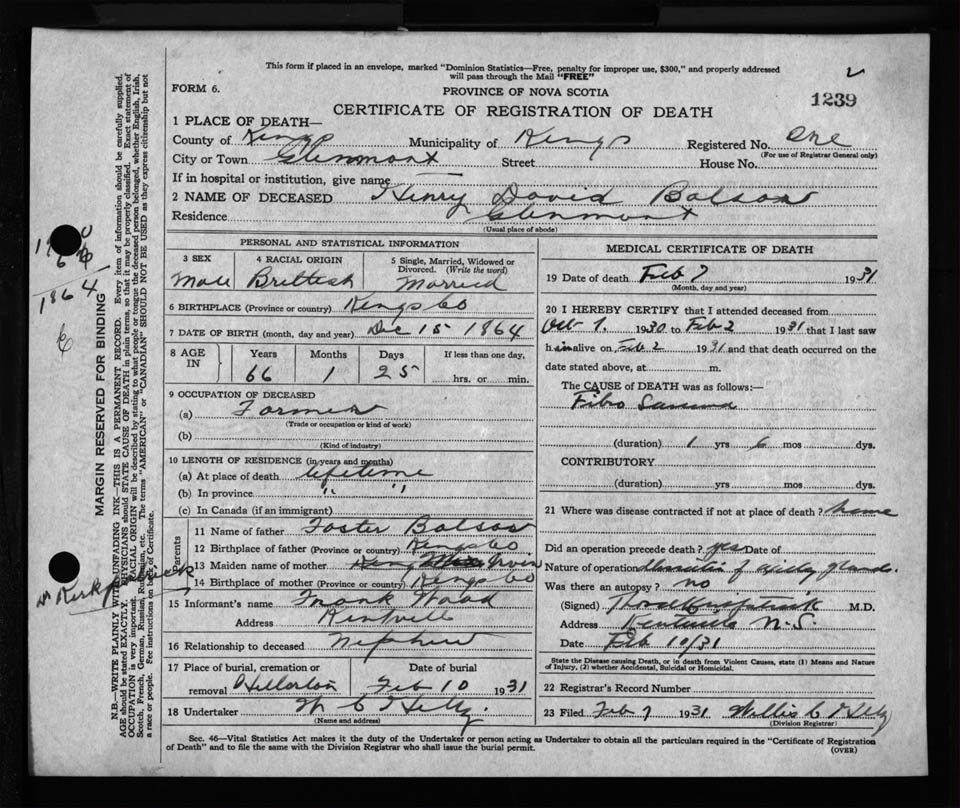 This form if placed in an envelope, marked "Dominion Statistics—Free, penalty for improper use, $300," and properly addressed
will pass through the Mail "FREE"
FORM 6.
PROVINCE OF NOVA SCOTIA
1239
CERTIFICATE OF REGISTRATION OF DEATH
1 PLACE OF DEATH—
County of Kings Municipality of Kings Registered No. One
(For use of Registrar General only)
City or Town Glenmont Street House No.
If in hospital or institution, give name
2 NAME OF DECEASED Henry David Balsor
Residence Glenmont
(Usual place of abode)
PERSONAL AND STATISTICAL INFORMATION
3 SEX 4 RACIAL ORIGIN 5 Single, Married, Widowed or
Divorced. (Write the word)
Male Brittish Married
6 BIRTHPLACE (Province or country) Kings Co
7 DATE OF BIRTH (month, day and year) Dec 15 1864
8 AGE IN Years Months Days If less than one day,
66 1 25 hrs. or min.
9 OCCUPATION OF DECEASED
(a) Farmer
(Trade or occupation or kind of work)
(b)
(Kind of industry)
10 LENGTH OF RESIDENCE (in years and months)
(a) At place of death lifetime
(b) In province " "
(c) In Canada (if an immigrant)
Parents
11 Name of father Foster Balsor
12 Birthplace of father (Province or country) Kings Co
13 Maiden name of mother Irvin
14 Birthplace of mother (Province or country) Kings Co
15 Informant's name Frank Wood
Address Kentville
16 Relationship to deceased Nephew
17 Place of burial, cremation or Date of burial
removal Hillaton Feb 10 1931
18 Undertaker W C
(Name and address)
MEDICAL CERTIFICATE OF DEATH
19 Date of death Feb 7 1931
(Month, day and year)
20 I HEREBY CERTIFY that I attended deceased from
Oct 1. 1930 to Feb 2 1931 that I last saw
him alive on Feb 2 1931 and that death occurred on the
date stated above, at m.
The CAUSE of DEATH was as follows:—
Fibro
(duration) 1 yrs 6 mos dys.
CONTRIBUTORY
(duration) yrs mos dys.
21 Where was disease contracted if not at place of death? home
Did an operation precede death? yes Date of
Nature of operation of glands.
Was there an autopsy? no
(Signed) M.D.
Address Kentville N.S.
Date Feb 10/31
State the Disease causing Death, or in death from Violent Causes, state (1) Means and Nature
of Injury, (2) whether Accidental, Suicidal or Homicidal.
22 Registrar's Record Number
23 Filed Feb 7 1931 Willis C
(Division Registrar)
Sec. 46—Vital Statistics Act makes it the duty of the Undertaker or person acting as Undertaker to obtain all the particulars required in the "Certificate of Registration
of Death" and to file the same with the Division Registrar who shall issue the burial permit.
(OVER)
MARGIN RESERVED FOR BINDING
N.B.—WRITE PLAINLY WITH UNFADING INK—THIS IS A PERMANENT RECORD. Every item of information should be carefully supplied.
AGE should be stated EXACTLY. PHYSICIANS should STATE CAUSE OF DEATH in plain terms, so that it may be properly classified. Exact statement of
OCCUPATION is very important. RACIAL ORIGIN will be described by stating to what people or tongue the deceased person belonged, whether English, Irish,
Scotch, French, German, Russian, Ruthenian, etc. The terms "AMERICAN" or "CANADIAN" SHOULD NOT BE USED as they express citizenship but not
a race or people. See instructions on back of Certificate.
1864